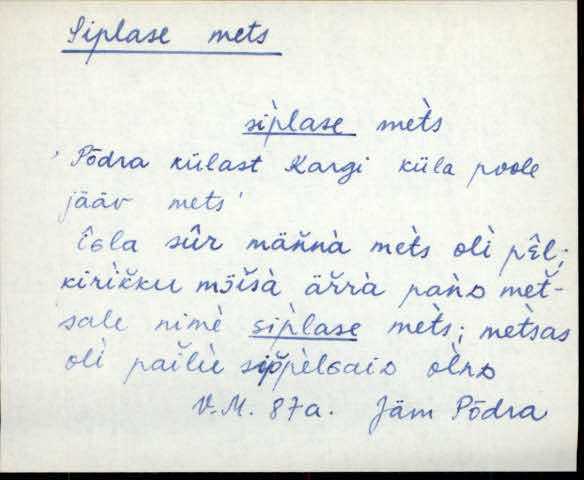 Siplase mets
sìplase met̀s
'Põdra külast Kargi küla poole
jääv mets'
Êᴃla sûr män̆nà met̀s olì pêl;
kirìk̆ku mɔ̄̆isà är̆rà pań̀ᴅ met̆-
sale nimè sìplase met̀s; met̀sas
olì pail̆lù sip̆pèlɢaiᴅ olǹᴅ
V.M. 87a. Jäm Põdra